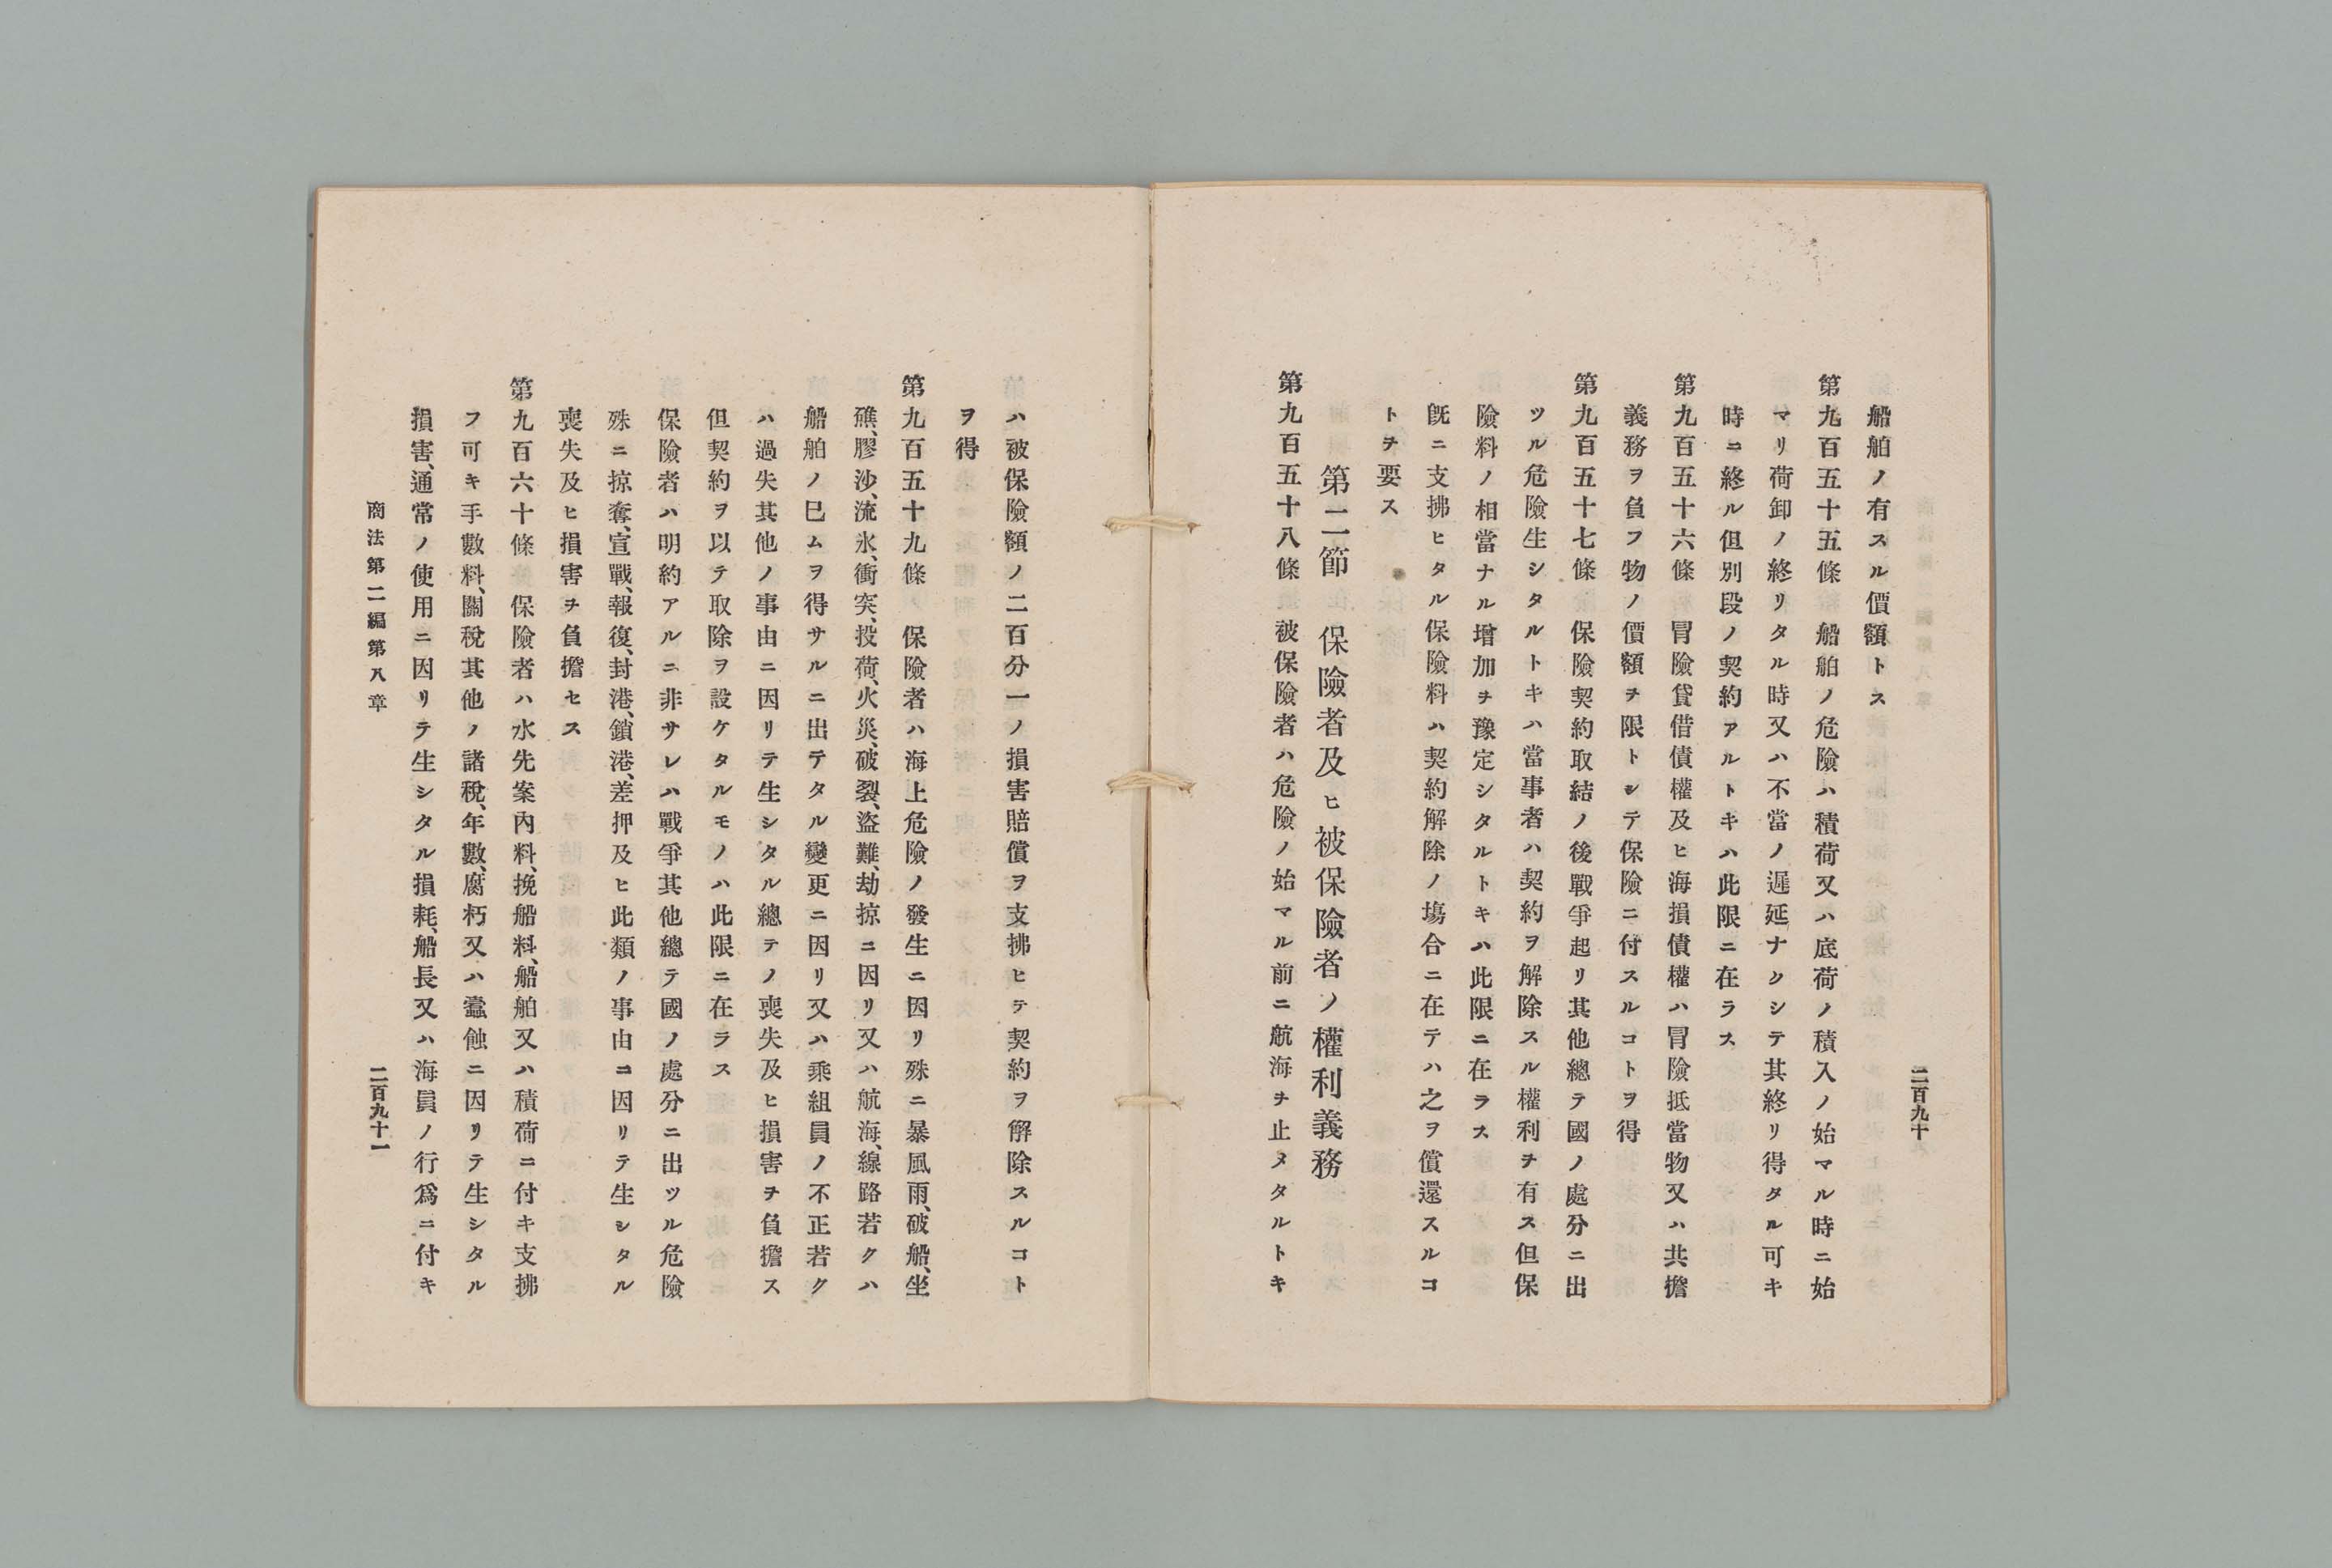 二百九十
船舶ノ有スル價額トス
第九百五十五條　船舶ノ危險ハ積荷又ハ底荷ノ積入ノ始マル時ニ始
マリ荷卸ノ終リタル時又ハ不當ノ遲延ナクシテ其終リ得タル可キ
時ニ終ル但別段ノ契約アルトキハ此限ニ在ラス
第九百五十六條　冐險貸借債權及ヒ海損債權ハ冐險抵當物又ハ共擔
義務ヲ負フ物ノ價額ヲ限トシテ保險ニ付スルコトヲ得
第九百五十七條　保險契約取結ノ後戰爭起リ其他總テ國ノ處分ニ出
ツル危險生シタルトキハ當事者ハ契約ヲ解除スル權利ヲ有ス但保
險料ノ相當ナル增加ヲ豫定シタルトキハ此限ニ在ラス
既ニ支拂ヒタル保險料ハ契約解除ノ塲合ニ在テハ之ヲ償還スルコ
トヲ要ス
第二節　保險者及ヒ被保險者ノ權利義務
第九百五十八條　被保險者ハ危險ノ始マル前ニ航海ヲ止メタルトキ
ハ被保險額ノ二百分一ノ損害賠償ヲ支拂ヒテ契約ヲ解除スルコト
ヲ得
第九百五十九條　保險者ハ海上危險ノ發生ニ因リ殊ニ暴風雨、破船、坐
礁、膠沙、流氷、衝突、投荷、火災、破裂、盜難、劫掠ニ因リ又ハ航海、線路若クハ
船舶ノ已ムヲ得サルニ出テタル變更ニ因リ又ハ乘組員ノ不正若ク
ハ過失其他ノ事由ニ因リテ生シタル總テノ喪失及ヒ損害ヲ負擔ス
但契約ヲ以テ取除ヲ設ケタルモノハ此限ニ在ラス
保險者ハ明約アルニ非サレハ戰爭其他總テ國ノ處分ニ出ツル危險
殊ニ掠奪、宣戰、報復、封港、鎖港、差押及ヒ此類ノ事由ニ因リテ生シタル
喪失及ヒ損害ヲ負擔セス
第九百六十條　保險者ハ水先案內料、挽船料、船舶又ハ積荷ニ付キ支拂
フ可キ手數料、關稅其他ノ諸稅、年數、腐朽又ハ蠧蝕ニ因リテ生シタル
損害、通常ノ使用ニ因リテ生シタル損耗、船長又ハ海員ノ行爲ニ付キ
商法第二編第八章
二百九十一